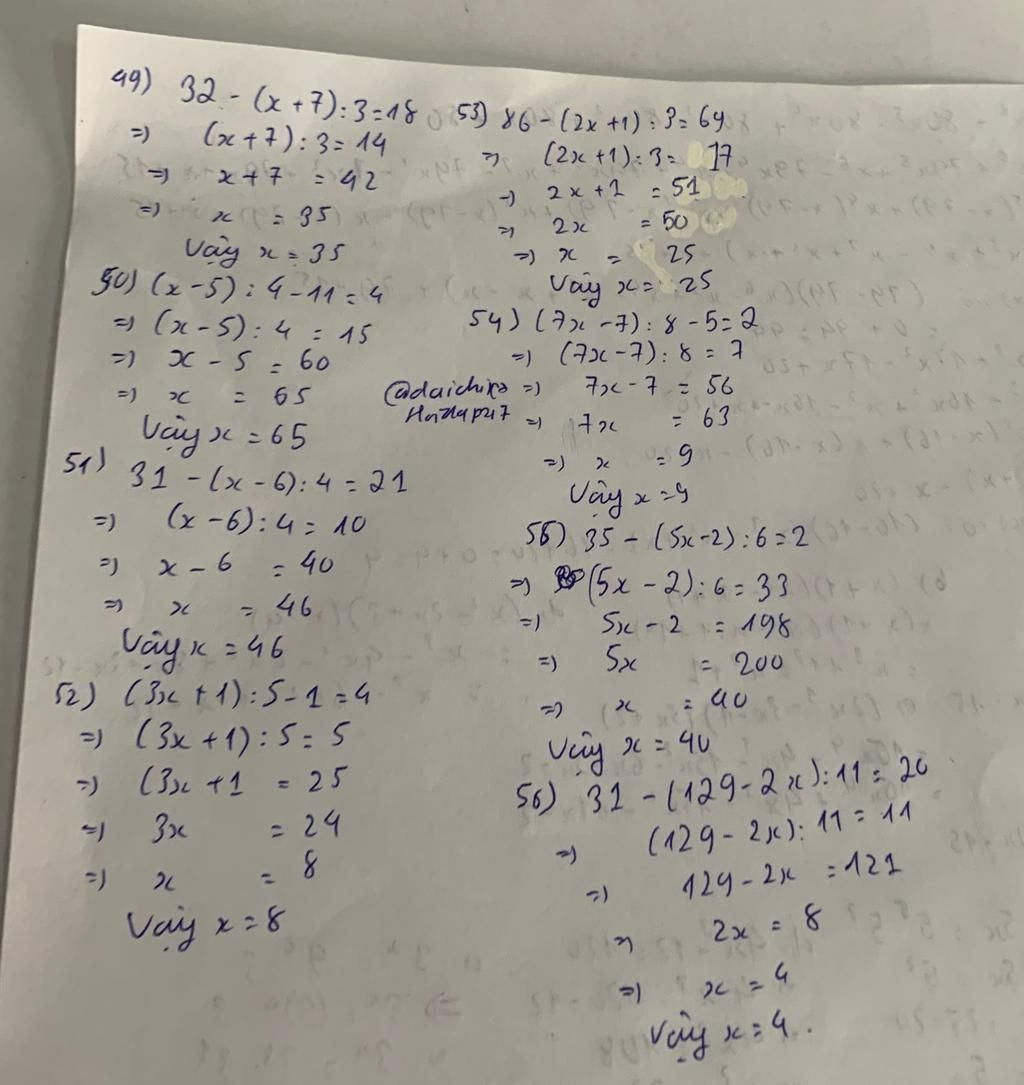 49) 32 - (x + 7) : 3 = 18
=> (x + 7) : 3 = 14
=> x + 7 = 42
=> x = 35
Vậy x = 35
50) (x - 5) : 4 - 11 = 4
=> (x - 5) : 4 = 15
=> x - 5 = 60
=> x = 65
Vậy x = 65
51) 31 - (x - 6) : 4 = 21
=> (x - 6) : 4 = 10
=> x - 6 = 40
=> x = 46
Vậy x = 46
52) (3x + 1) : 5 - 1 = 4
=> (3x + 1) : 5 = 5
=> (3x + 1 = 25
=> 3x = 24
=> x = 8
Vậy x = 8
53) 86 - (2x + 1) : 3 = 69
=> (2x + 1) : 3 = 17
=> 2x + 1 = 51
=> 2x = 50
=> x = 25
Vậy x = 25
54) (7x - 7) : 8 - 5 = 2
=> (7x - 7) : 8 = 7
=> 7x - 7 = 56
=> 7x = 63
=> x = 9
Vậy x = 9
55) 35 - (5x - 2) : 6 = 2
=> (5x - 2) : 6 = 33
=> 5x - 2 = 198
=> 5x = 200
=> x = 40
Vậy x = 40
56) 31 - (129 - 2x) : 11 = 20
=> (129 - 2x) : 11 = 11
=> 129 - 2x = 121
=> 2x = 8
=> x = 4
Vậy x = 4.